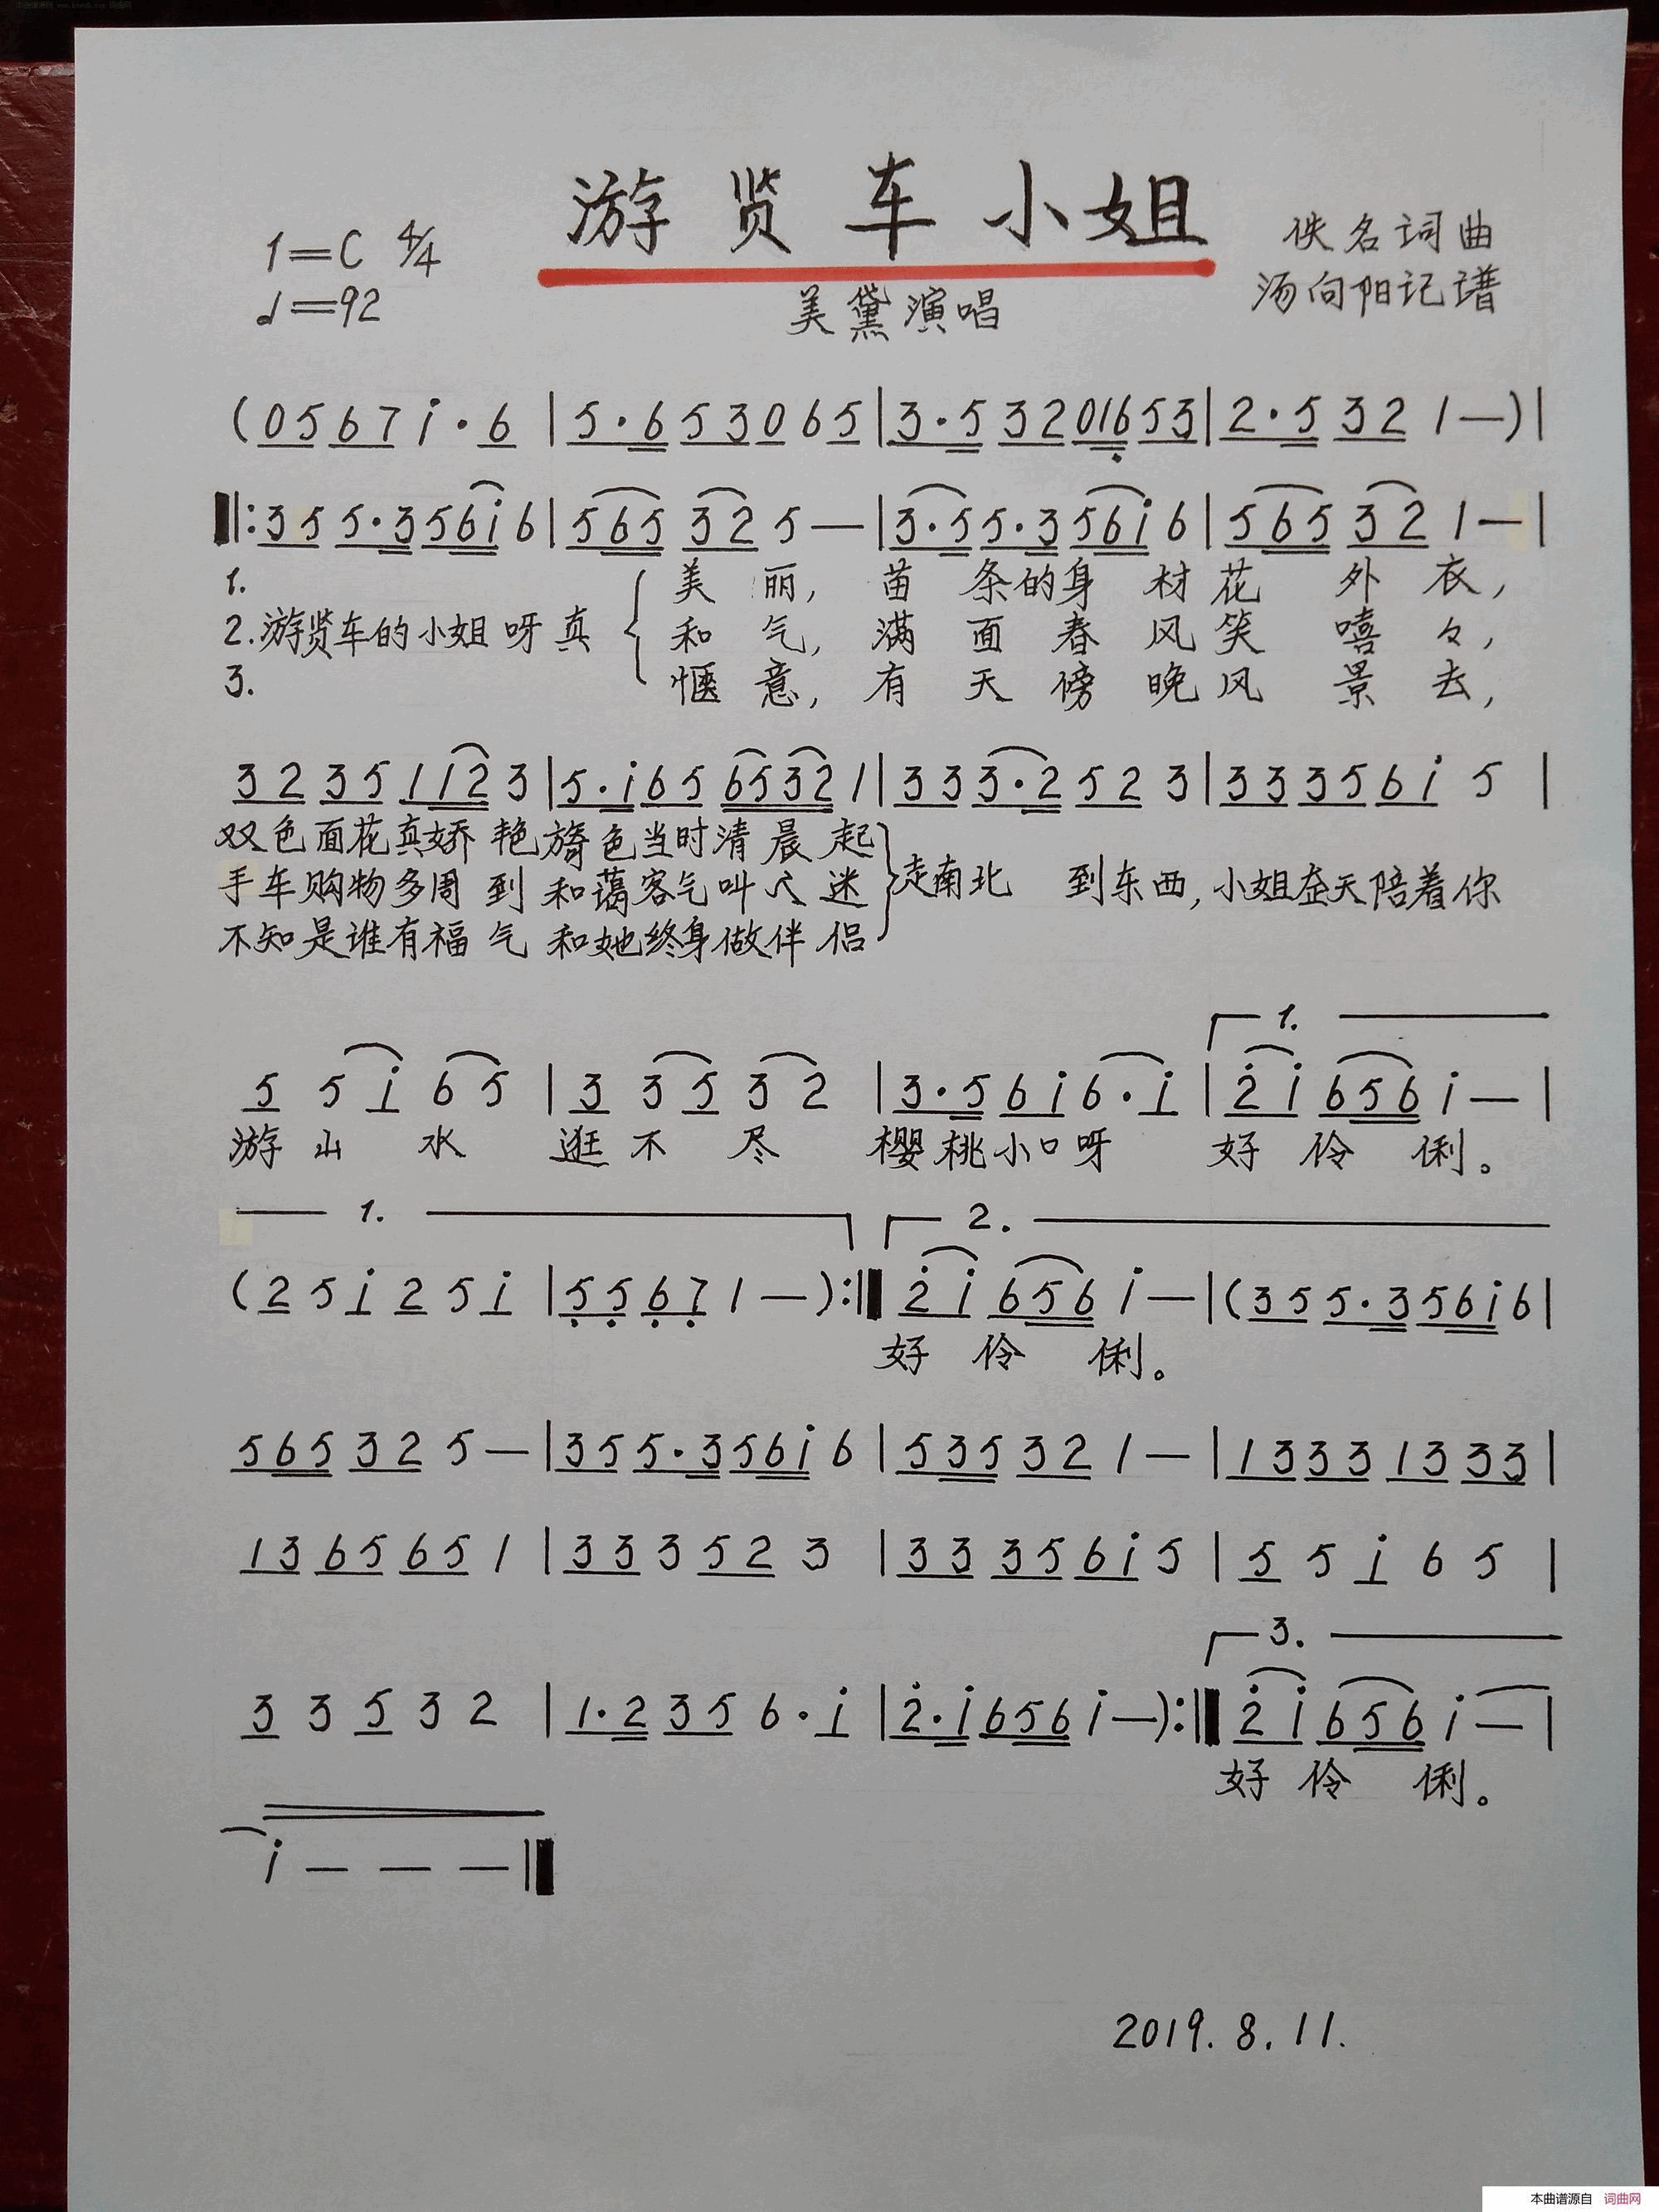 游贤车小姐
1=C 4/4
佚名词曲
♩=92
美黛演唱
汤向阳记谱
(0567i·6|5·653065|3·53201653|2·5321—)|
‖:355·356i6|565325—|3·55·356i6|565321—|
1. 美丽,苗条的身材花外衣,
2.游贤车的小姐呀真{和气,满面春风笑嘻々,
3. 惬意,有天傍晚风景去,
32351123|5·i6565321|333·2523|33356i5|
双色面花真娇艳旖色当时清晨起
手车购物多周到和蔼客气叫人迷}走南北 到东西,小姐在天陪着你
不知是谁有福气和她终身做伴侣
1.
55i65|33532|3·56i6·i|2i656i—|
游山水逛不尽樱桃小口呀好伶俐。
1. 2.
(25i25i|55671—):‖2i656i—|(355·356i6|
好伶俐。
565325—|355·356i6|535321—|13331333|
1365651|333523|33356i5|55i65|
3.
33532|1·2356·i|2·i656i—):‖2i656i—|
好伶俐。
i———‖
2019.8.11.
本曲谱源自 词曲网